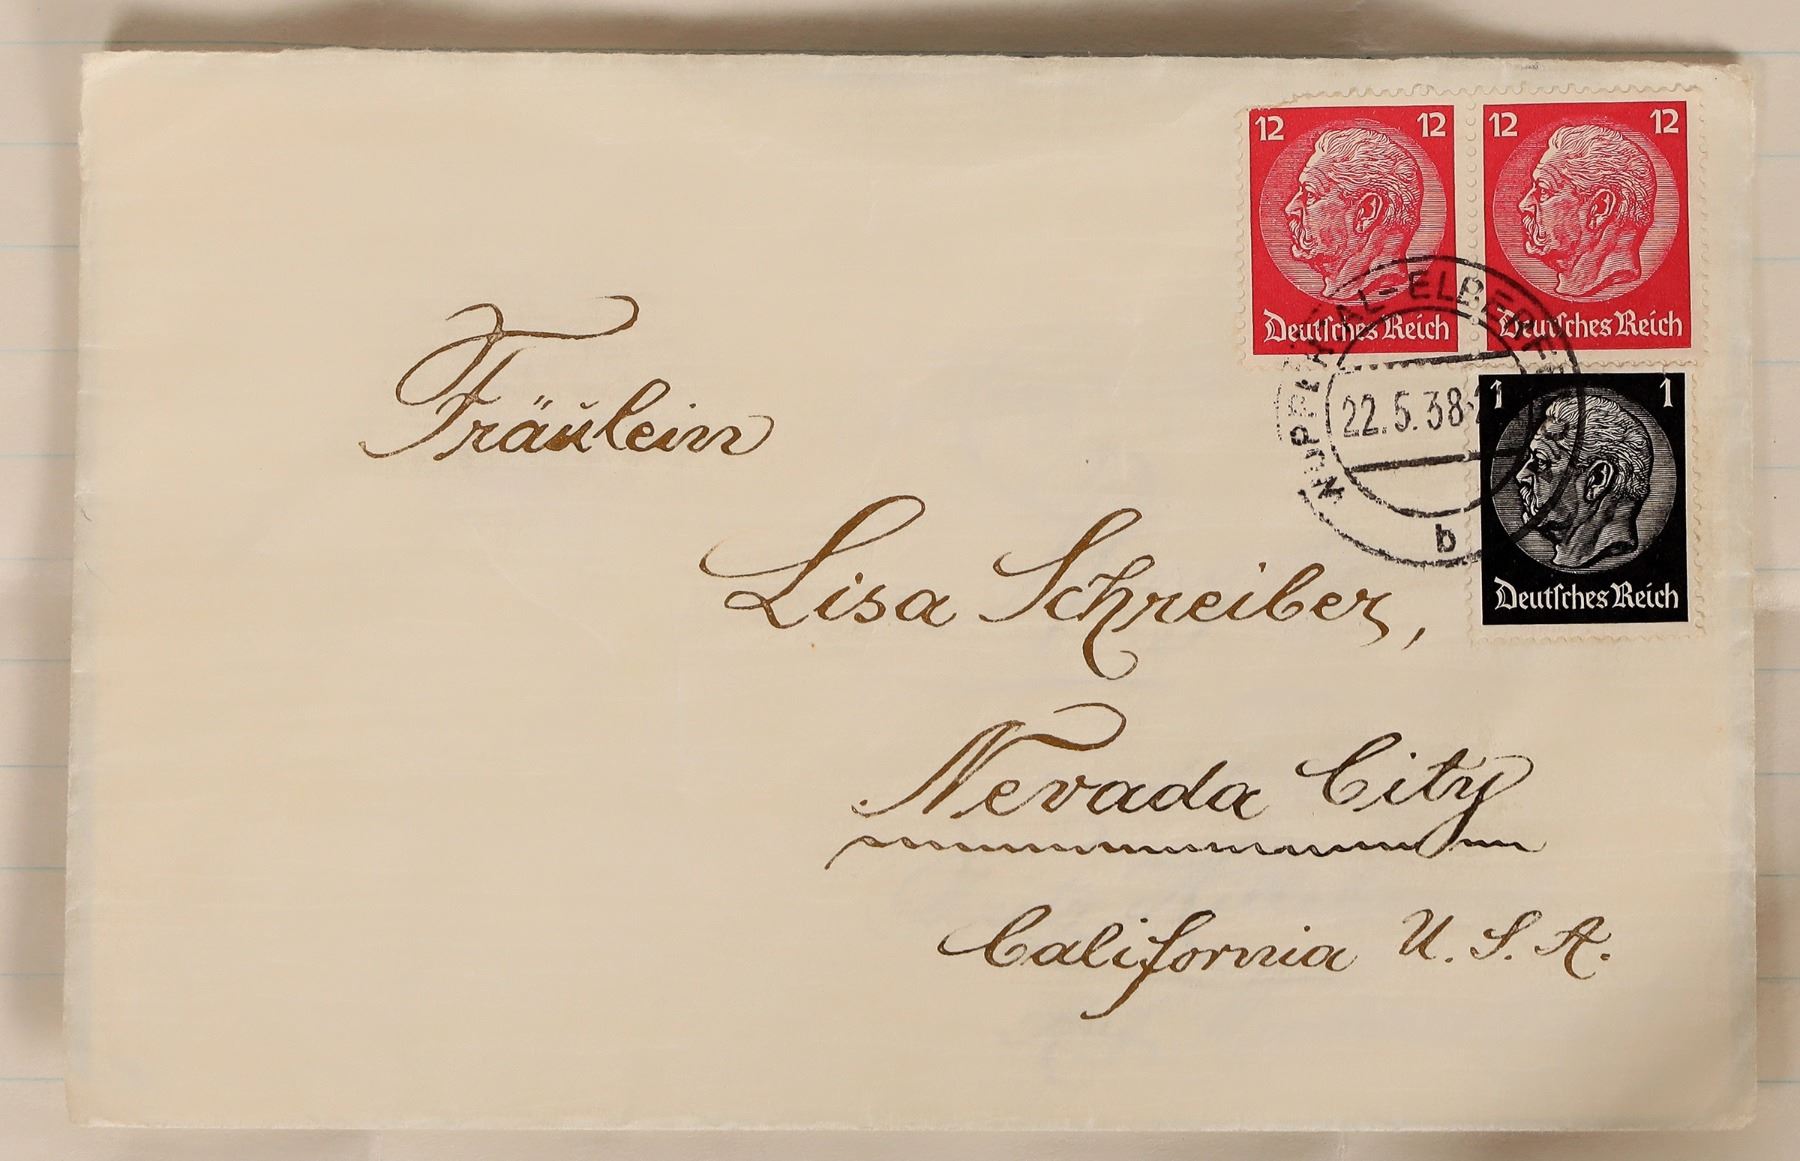 12 12 12 12
Deutsches Reich Deutsches Reich
WUPPERTAL-ELBERFELD
22.5.38
b
1 1
Deutsches Reich
Fräulein
Lisa Schreiber,
Nevada City
California U. S. A.